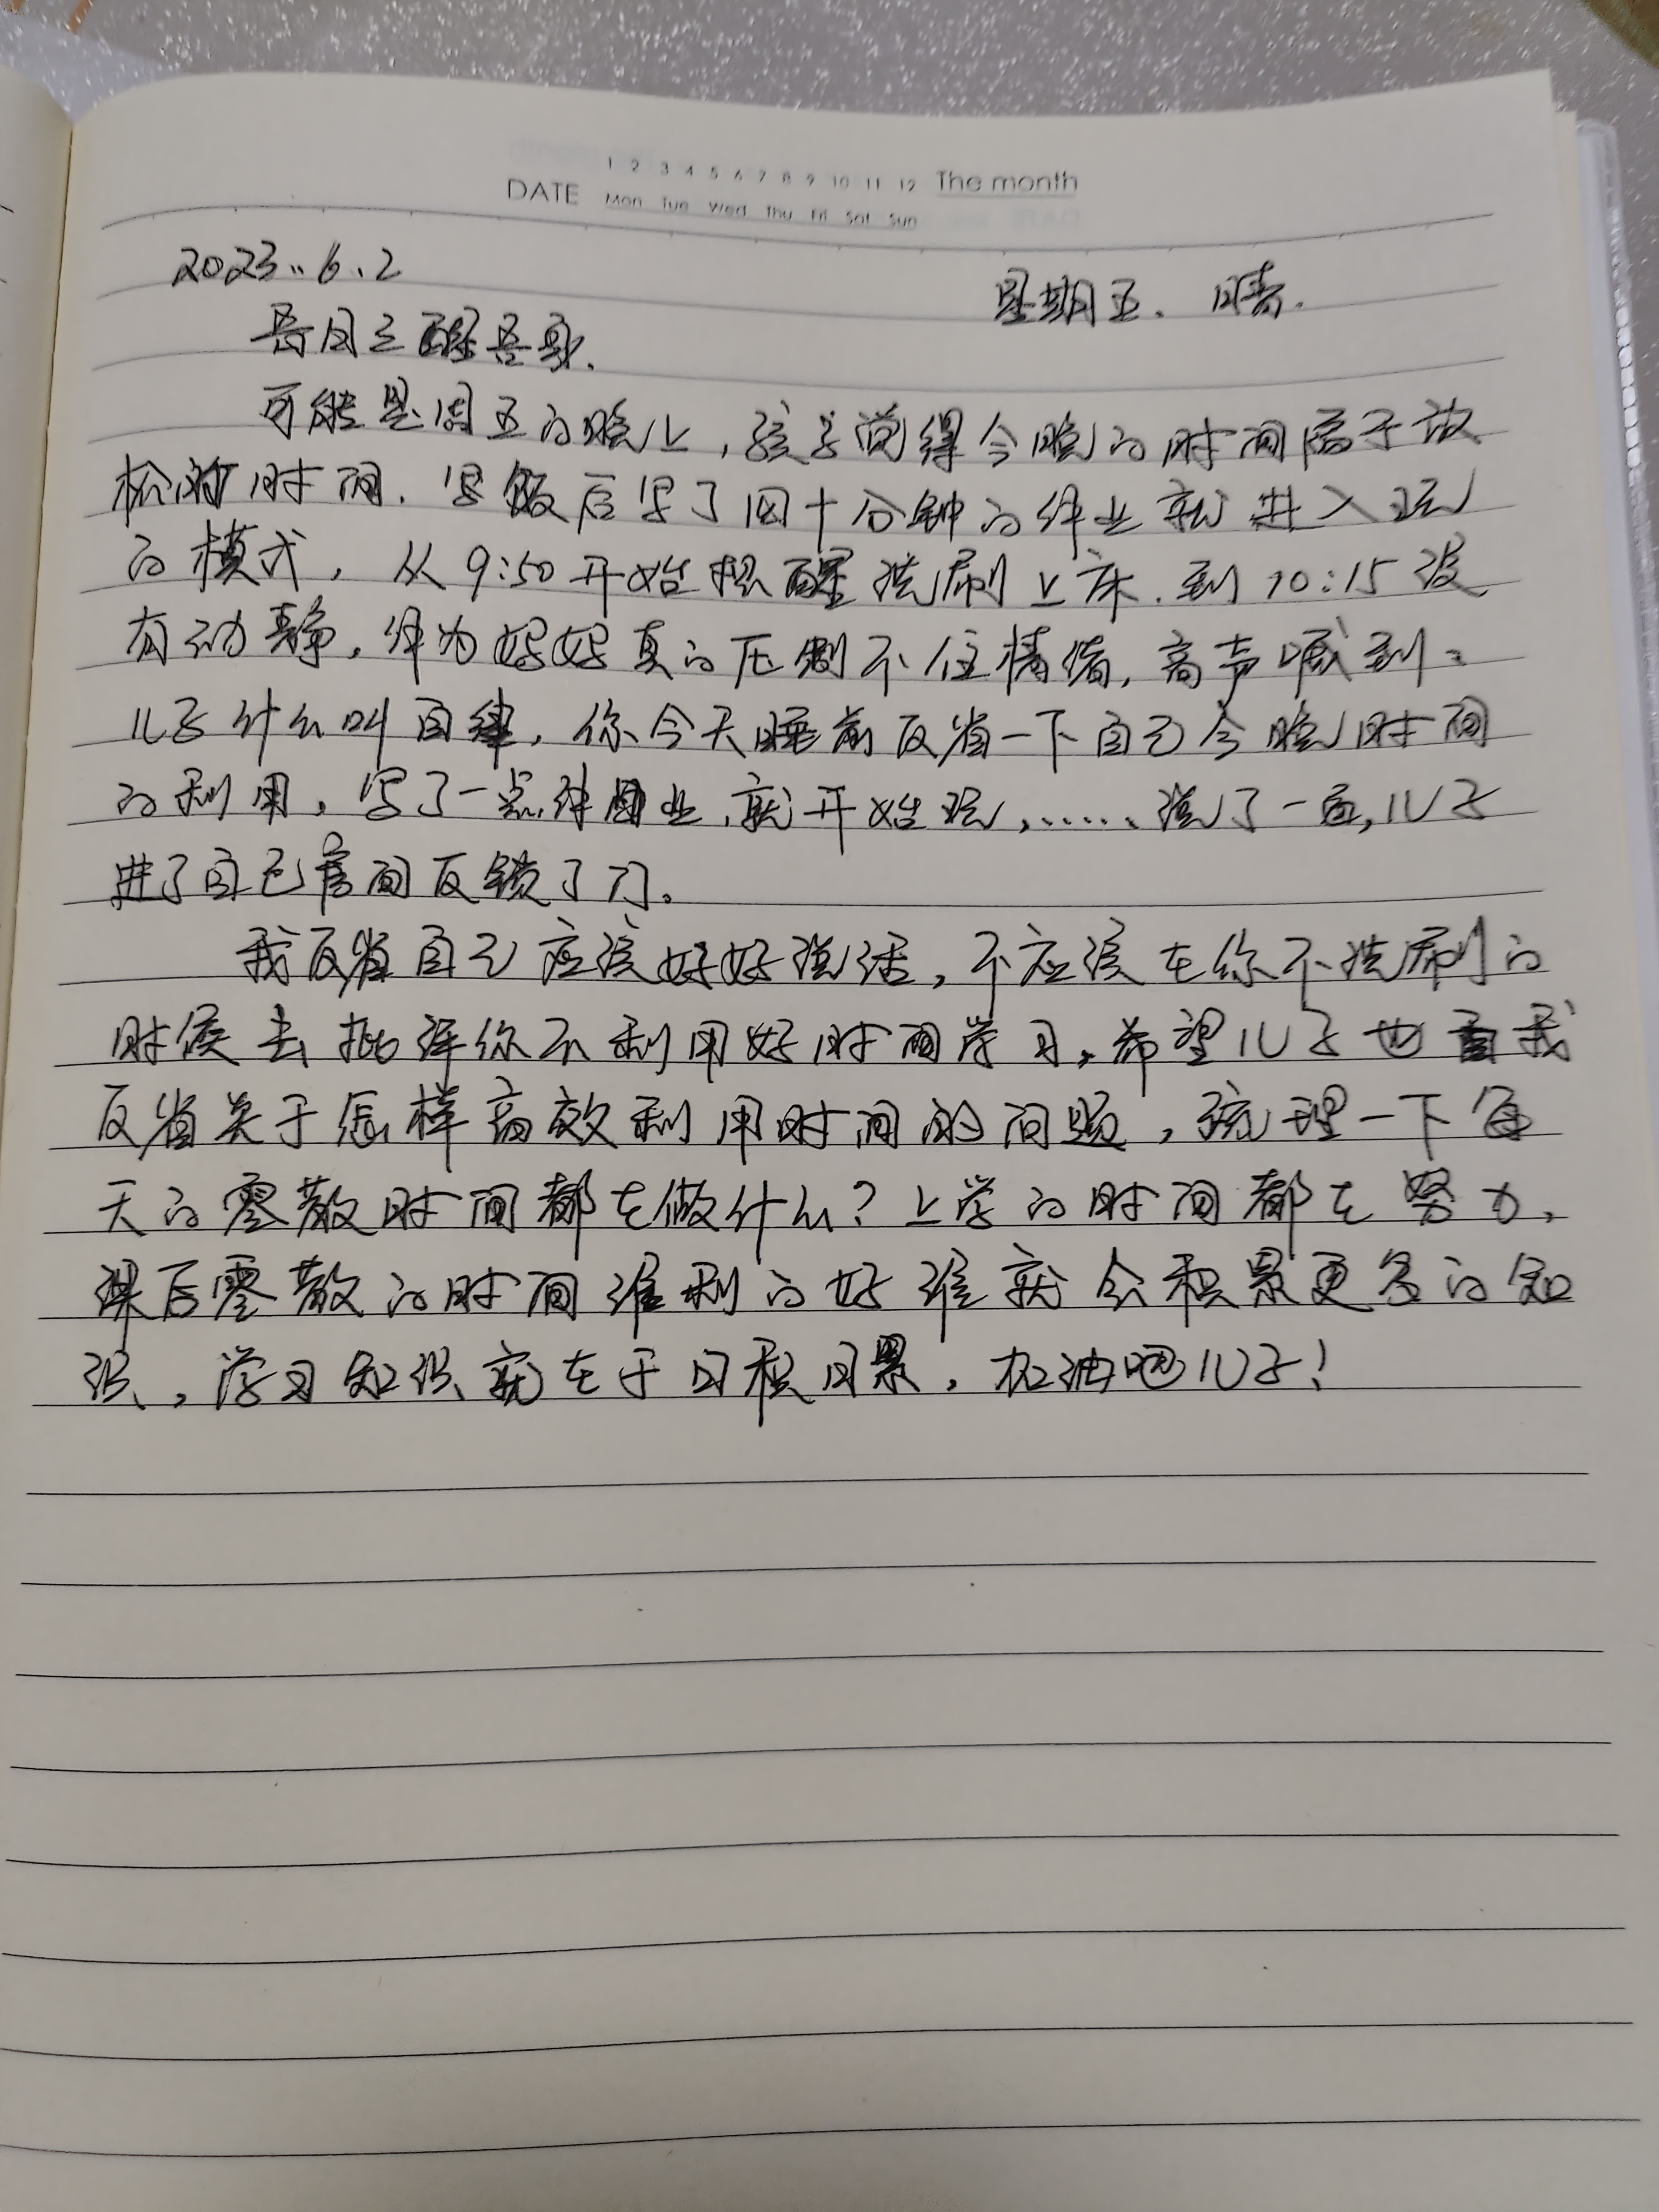 1 2 3 4 5 6 7 8 9 10 11 12 The month
DATE Mon Tue Wed Thu Fri Sat Sun
2023.6.2
星期五. 晴.
吾日三醒吾身.
可能是周五的晚上,孩子觉得今晚的时间属于放
松的时间.晚饭后写了四十分钟的作业就进入玩
的模式,从9:50开始提醒洗刷上床.到10:15没
有动静,作为妈妈真的压制不住情绪,高声喊到:
儿子什么叫自律,你今天睡前反省一下自己今晚时间
的利用,写了一点作业,就开始玩,......说了一通,儿子
进了自己房间反锁了门。
我反省自己应该好好说话,不应该在你不洗刷的
时候去批评你不利用好时间学习,希望儿子也自我
反省关于怎样高效利用时间的问题,梳理一下每
天的零散时间都在做什么?上学的时间都在努力,
课后零散的时间谁利的好谁就会积累更多的知
识,学习知识就在于日积月累,加油吧儿子!